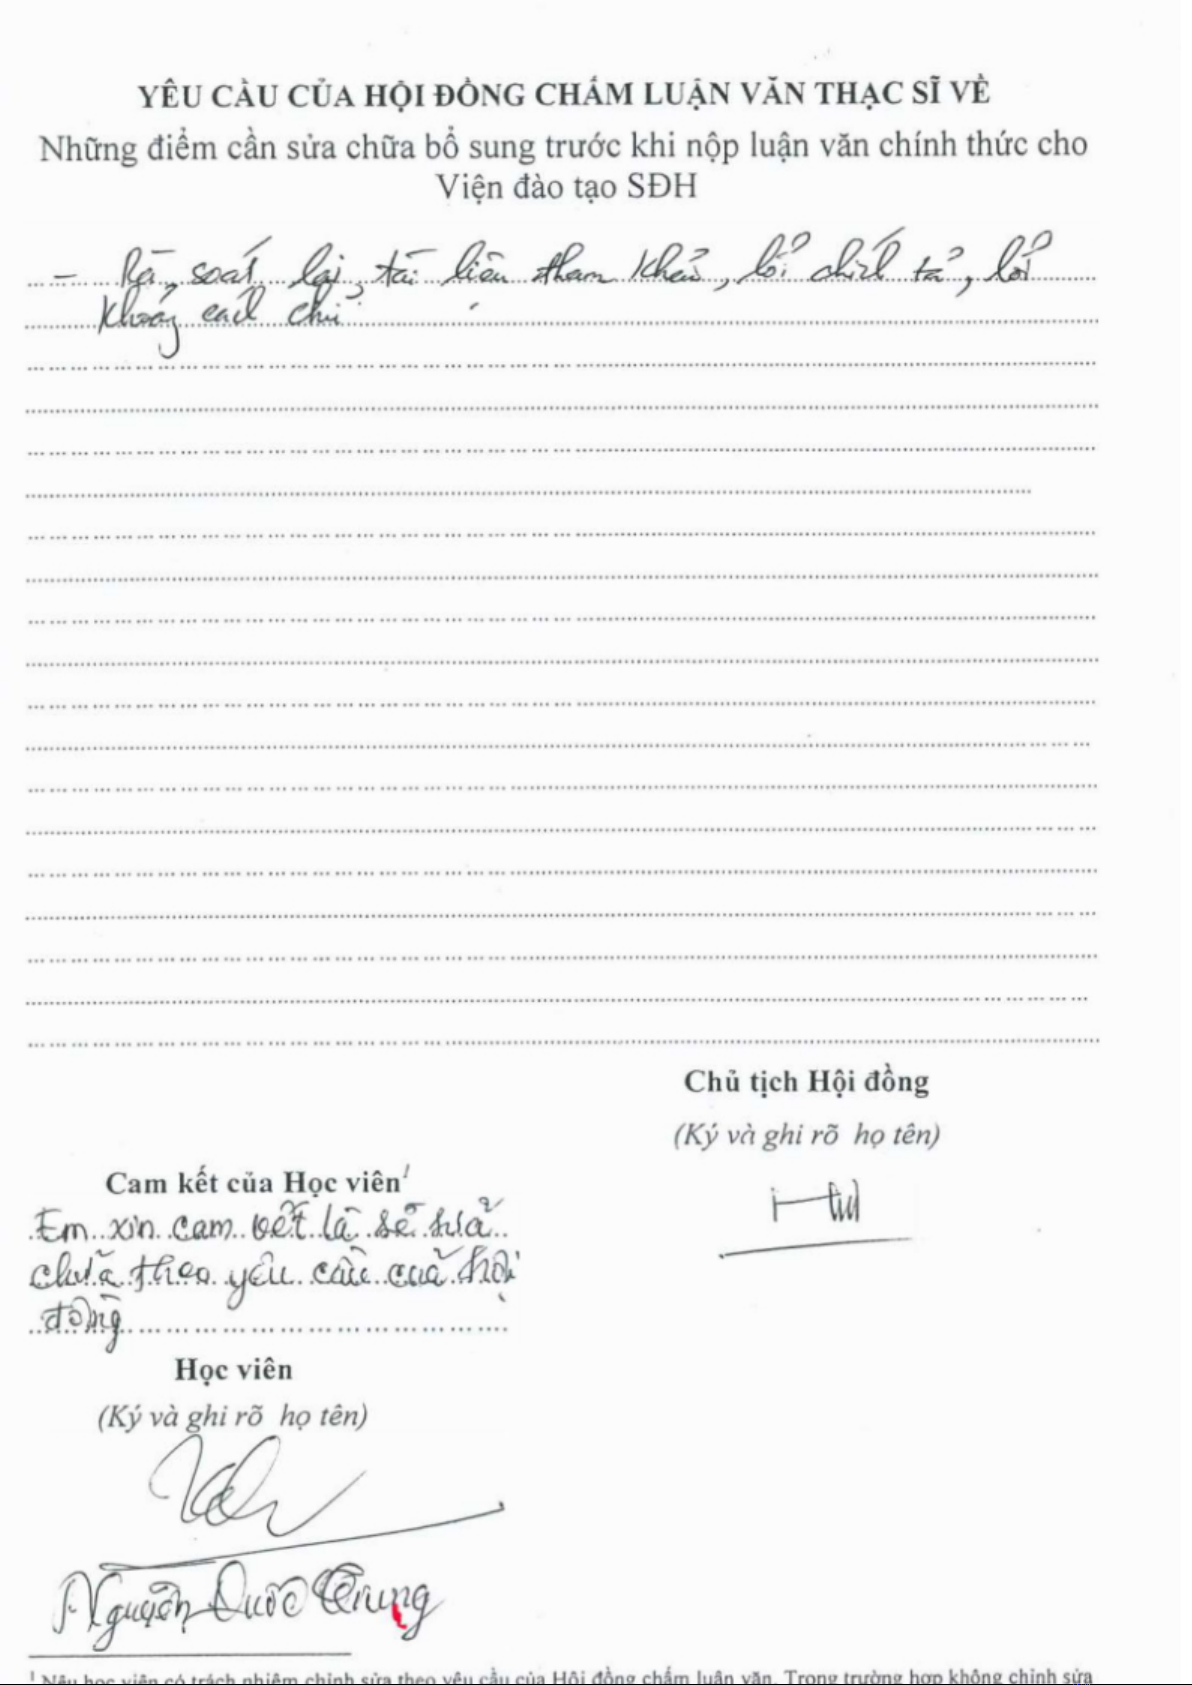 YÊU CẦU CỦA HỘI ĐỒNG CHẤM LUẬN VĂN THẠC SĨ VỀ
Những điểm cần sửa chữa bổ sung trước khi nộp luận văn chính thức cho
Viện đào tạo SĐH
- Rà soát lại tài liệu tham khảo, lỗi chính tả, lỗi
khoảng cách chữ
Chủ tịch Hội đồng
(Ký và ghi rõ họ tên)
Cam kết của Học viên¹
Em xin cam kết là sẽ sửa
chữa theo yêu cầu của hội
đồng
Học viên
(Ký và ghi rõ họ tên)
Nguyễn Quốc Trung
¹ Nêu học viên có trách nhiệm chỉnh sửa theo yêu cầu của Hội đồng chấm luận văn. Trong trường hợp không chỉnh sửa